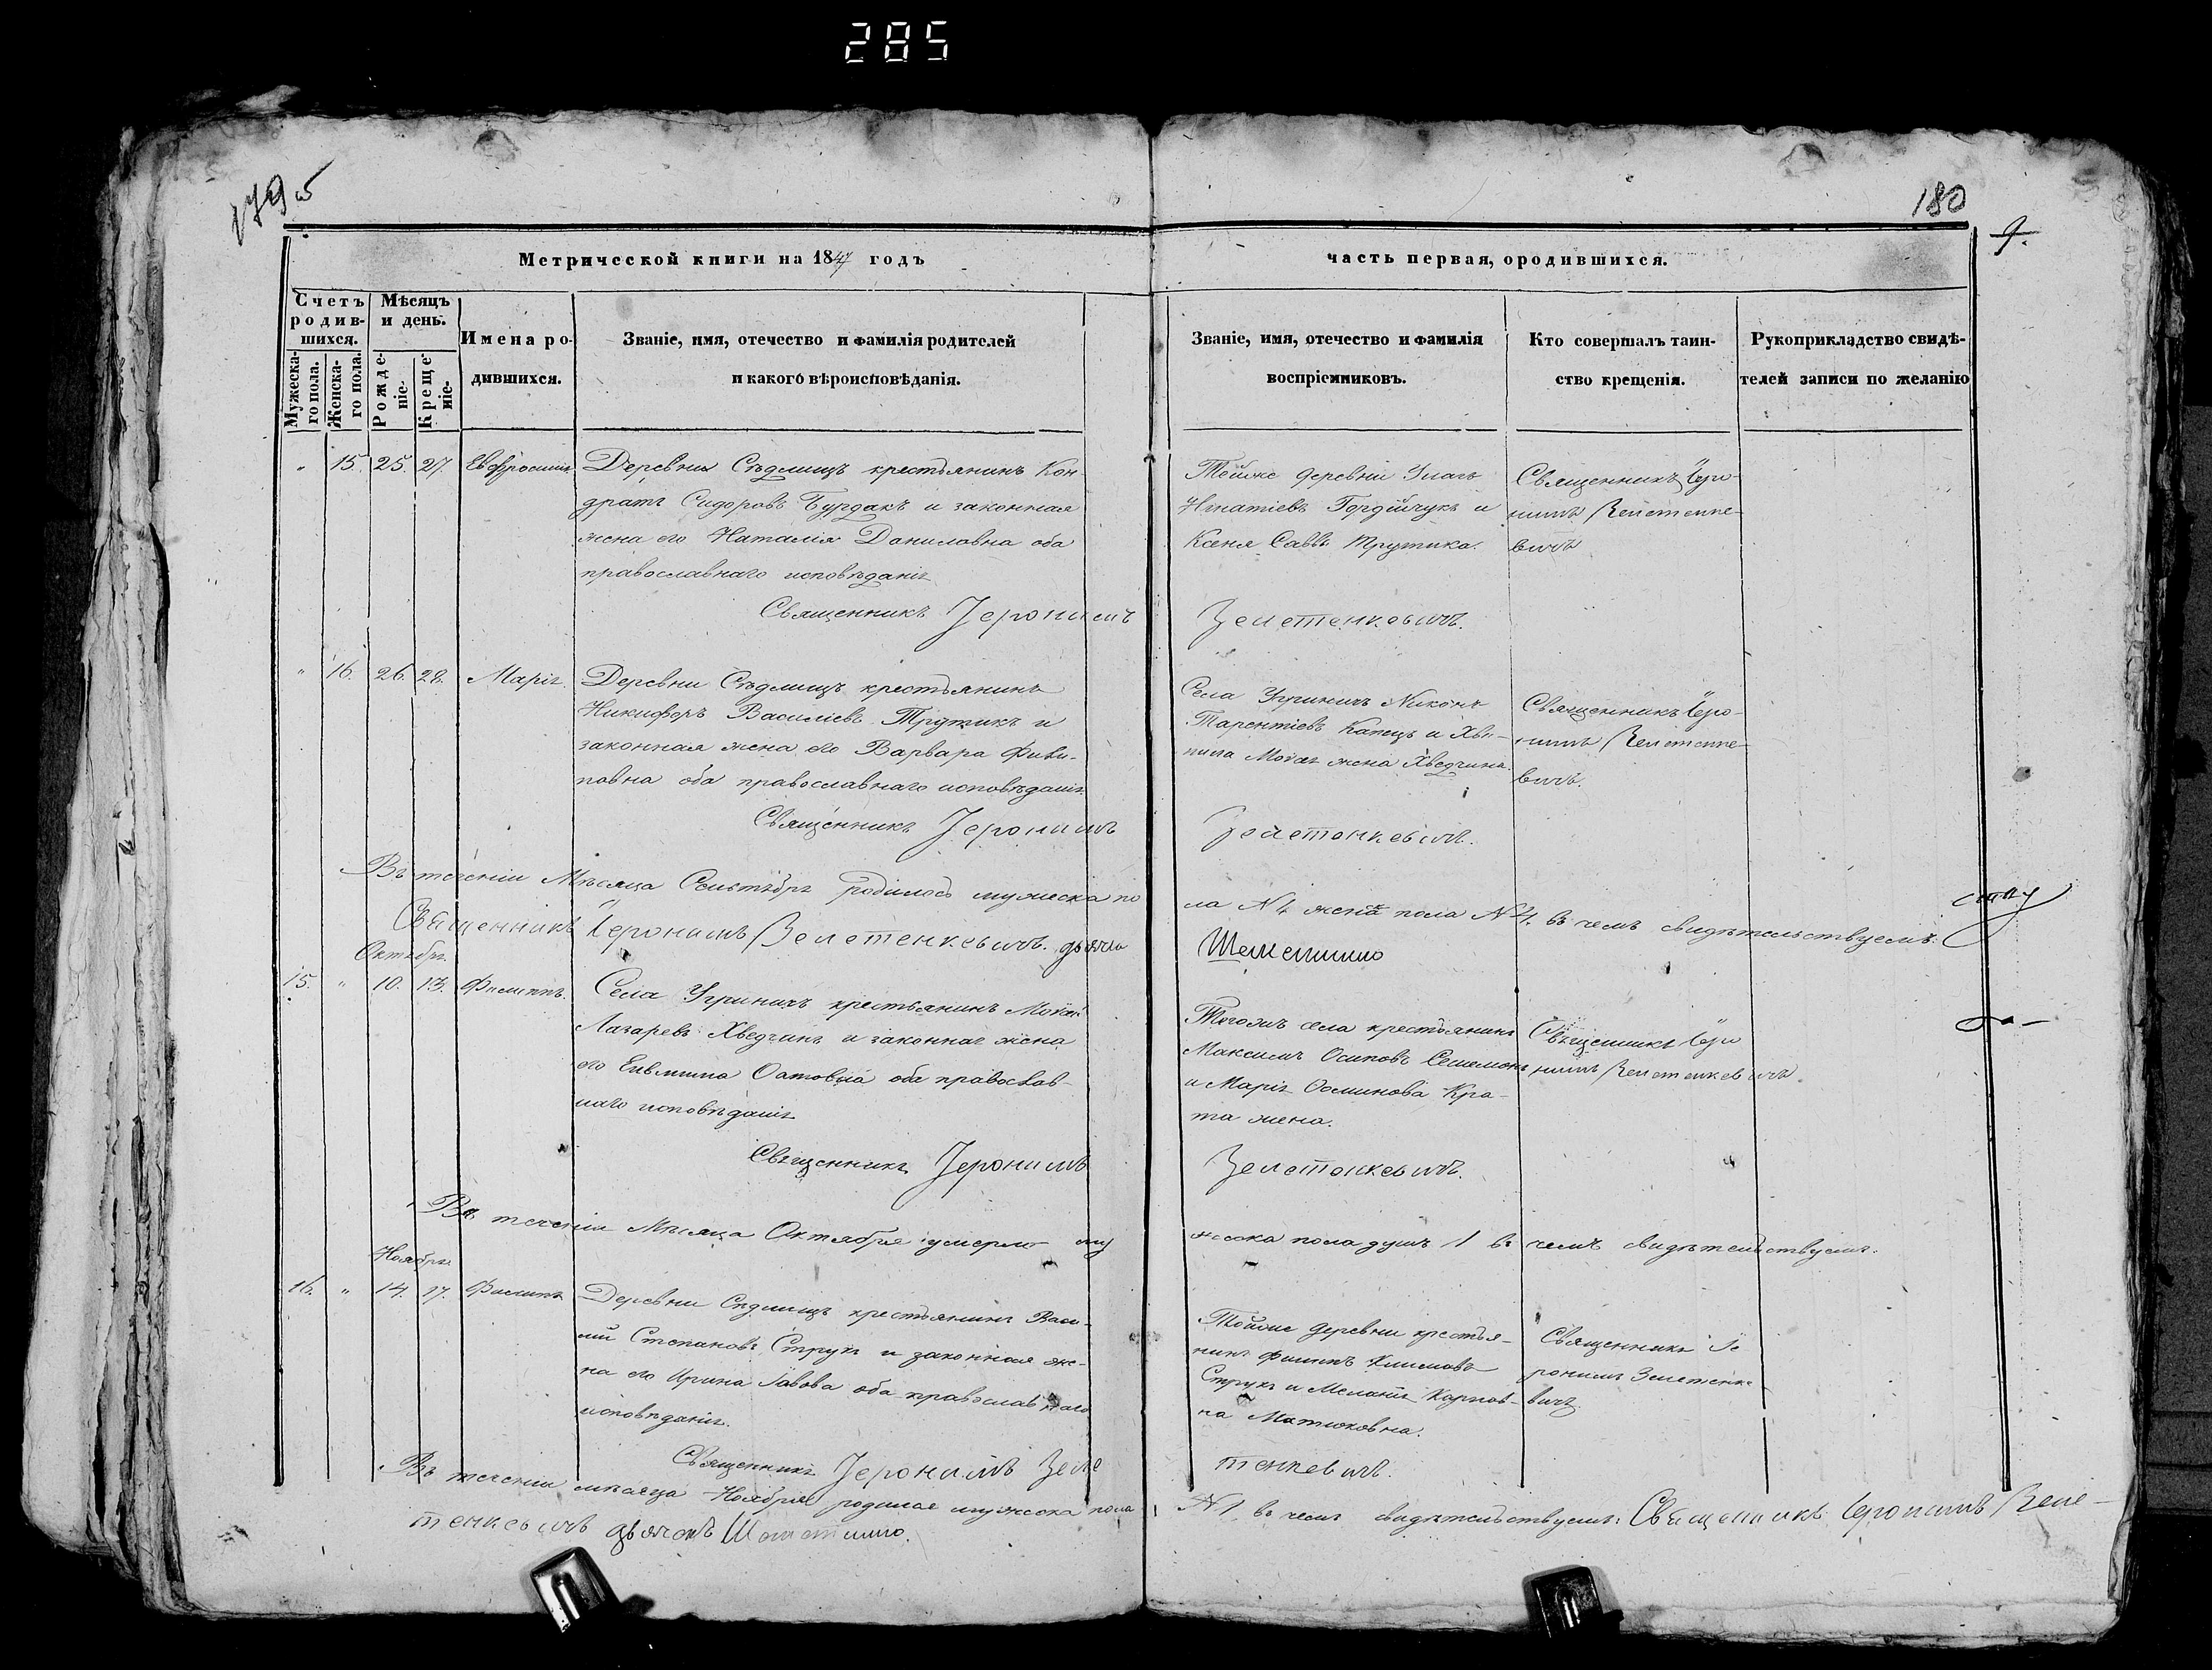 285
179 об
180
9.
Метрической книги на 1847 годъ
часть первая, ородившихся.
Счетъ родив-
шихся.
Мужеска-
го пола.
Женска-
го пола.
Мѣсяцъ
и день.
Рожде-
ніе.
Креще-
ніе.
Имена ро-
дившихся.
Званіе, имя, отечество и фамилія родителей
и какого вѣроисповѣданія.
Званіе, имя, отечество и фамилія
воспріемниковъ.
Кто совершалъ таин-
ство крещенія.
Рукоприкладство свидѣ-
телей записи по желанію
" 15. 25. 27. Деревни Сѣдлищъ крестьянинъ Кон-
дратъ Сидоровъ Бурдакъ и законная
жена его Наталія Даниловна оба
православнаго исповѣданія
Тойже деревни
Игнатіевъ Гордійчукъ и
Ксеня Савв
Священникъ Іеро-
нимъ Зелетенке-
вичъ
Священникъ Іеронимъ
Зелетенкевичъ.
" 16. 26. 28. Марія. Деревни Сѣдлищъ крестьянинъ
Никифоръ Василіевъ и
законная жена его Варвара Фили-
повна оба православнаго исповѣданія.
Села Угриничъ Никонъ
Тарентіевъ и
жена Хведчина.
Священникъ Іеро-
нимъ Зелетенке-
вичъ.
Священникъ Іеронимъ
Зелетенкевичъ.
Въ теченіи Мѣсяца Сентября родилось мужеска по
ла № 4 женска пола № 4. въ чемъ свидѣтельствуемъ:
Священникъ Іеронимъ Зелетенкевичъ. дьячок
Октябрь.
15. " 10. 13. Филиппъ. Села Угриничъ крестьянинъ
Лазаревъ Хведчинъ и законная жена
его оба православ-
наго исповѣданія
Тогожъ села крестьянинъ
Максимъ Осиповъ
и Марія
жена.
Священникъ Іеро
нимъ Зелетенкевичъ.
Священникъ Іеронимъ
Зелетенкевичъ.
Въ теченіи Мѣсяца Октября умерло му
жеска пола душъ 1 въ чемъ свидѣтельствуемъ.
Ноябрь
16. " 14. 17. Филипъ Деревни Сѣдлищъ крестьянинъ Васи-
лій Степановъ Струкъ и законная же-
на его Ирина оба православнаго
исповѣданія.
Тойже деревни крестья-
нинъ Филипъ Климовъ
Струкъ и Меланія Карпов-
на
Священникъ Іе
ронимъ Зелетенке
вичъ
Священникъ Іеронимъ Зеле
тенкевичъ.
Въ теченіи мѣсяца Ноября родилося мужеска пола
№ 1 въ чемъ свидѣтельствуемъ: Священникъ Іеронимъ Зеле-
тенкевичъ дьячокъ